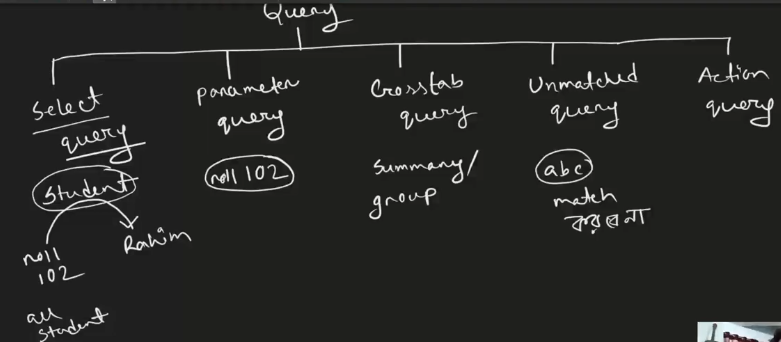 Query
Select
query
Student
roll
102
Rahim
all
student
parameter
query
roll 102
Crosstab
query
Summary/
group
Unmatched
query
abc
match
করবেনা
Action
query